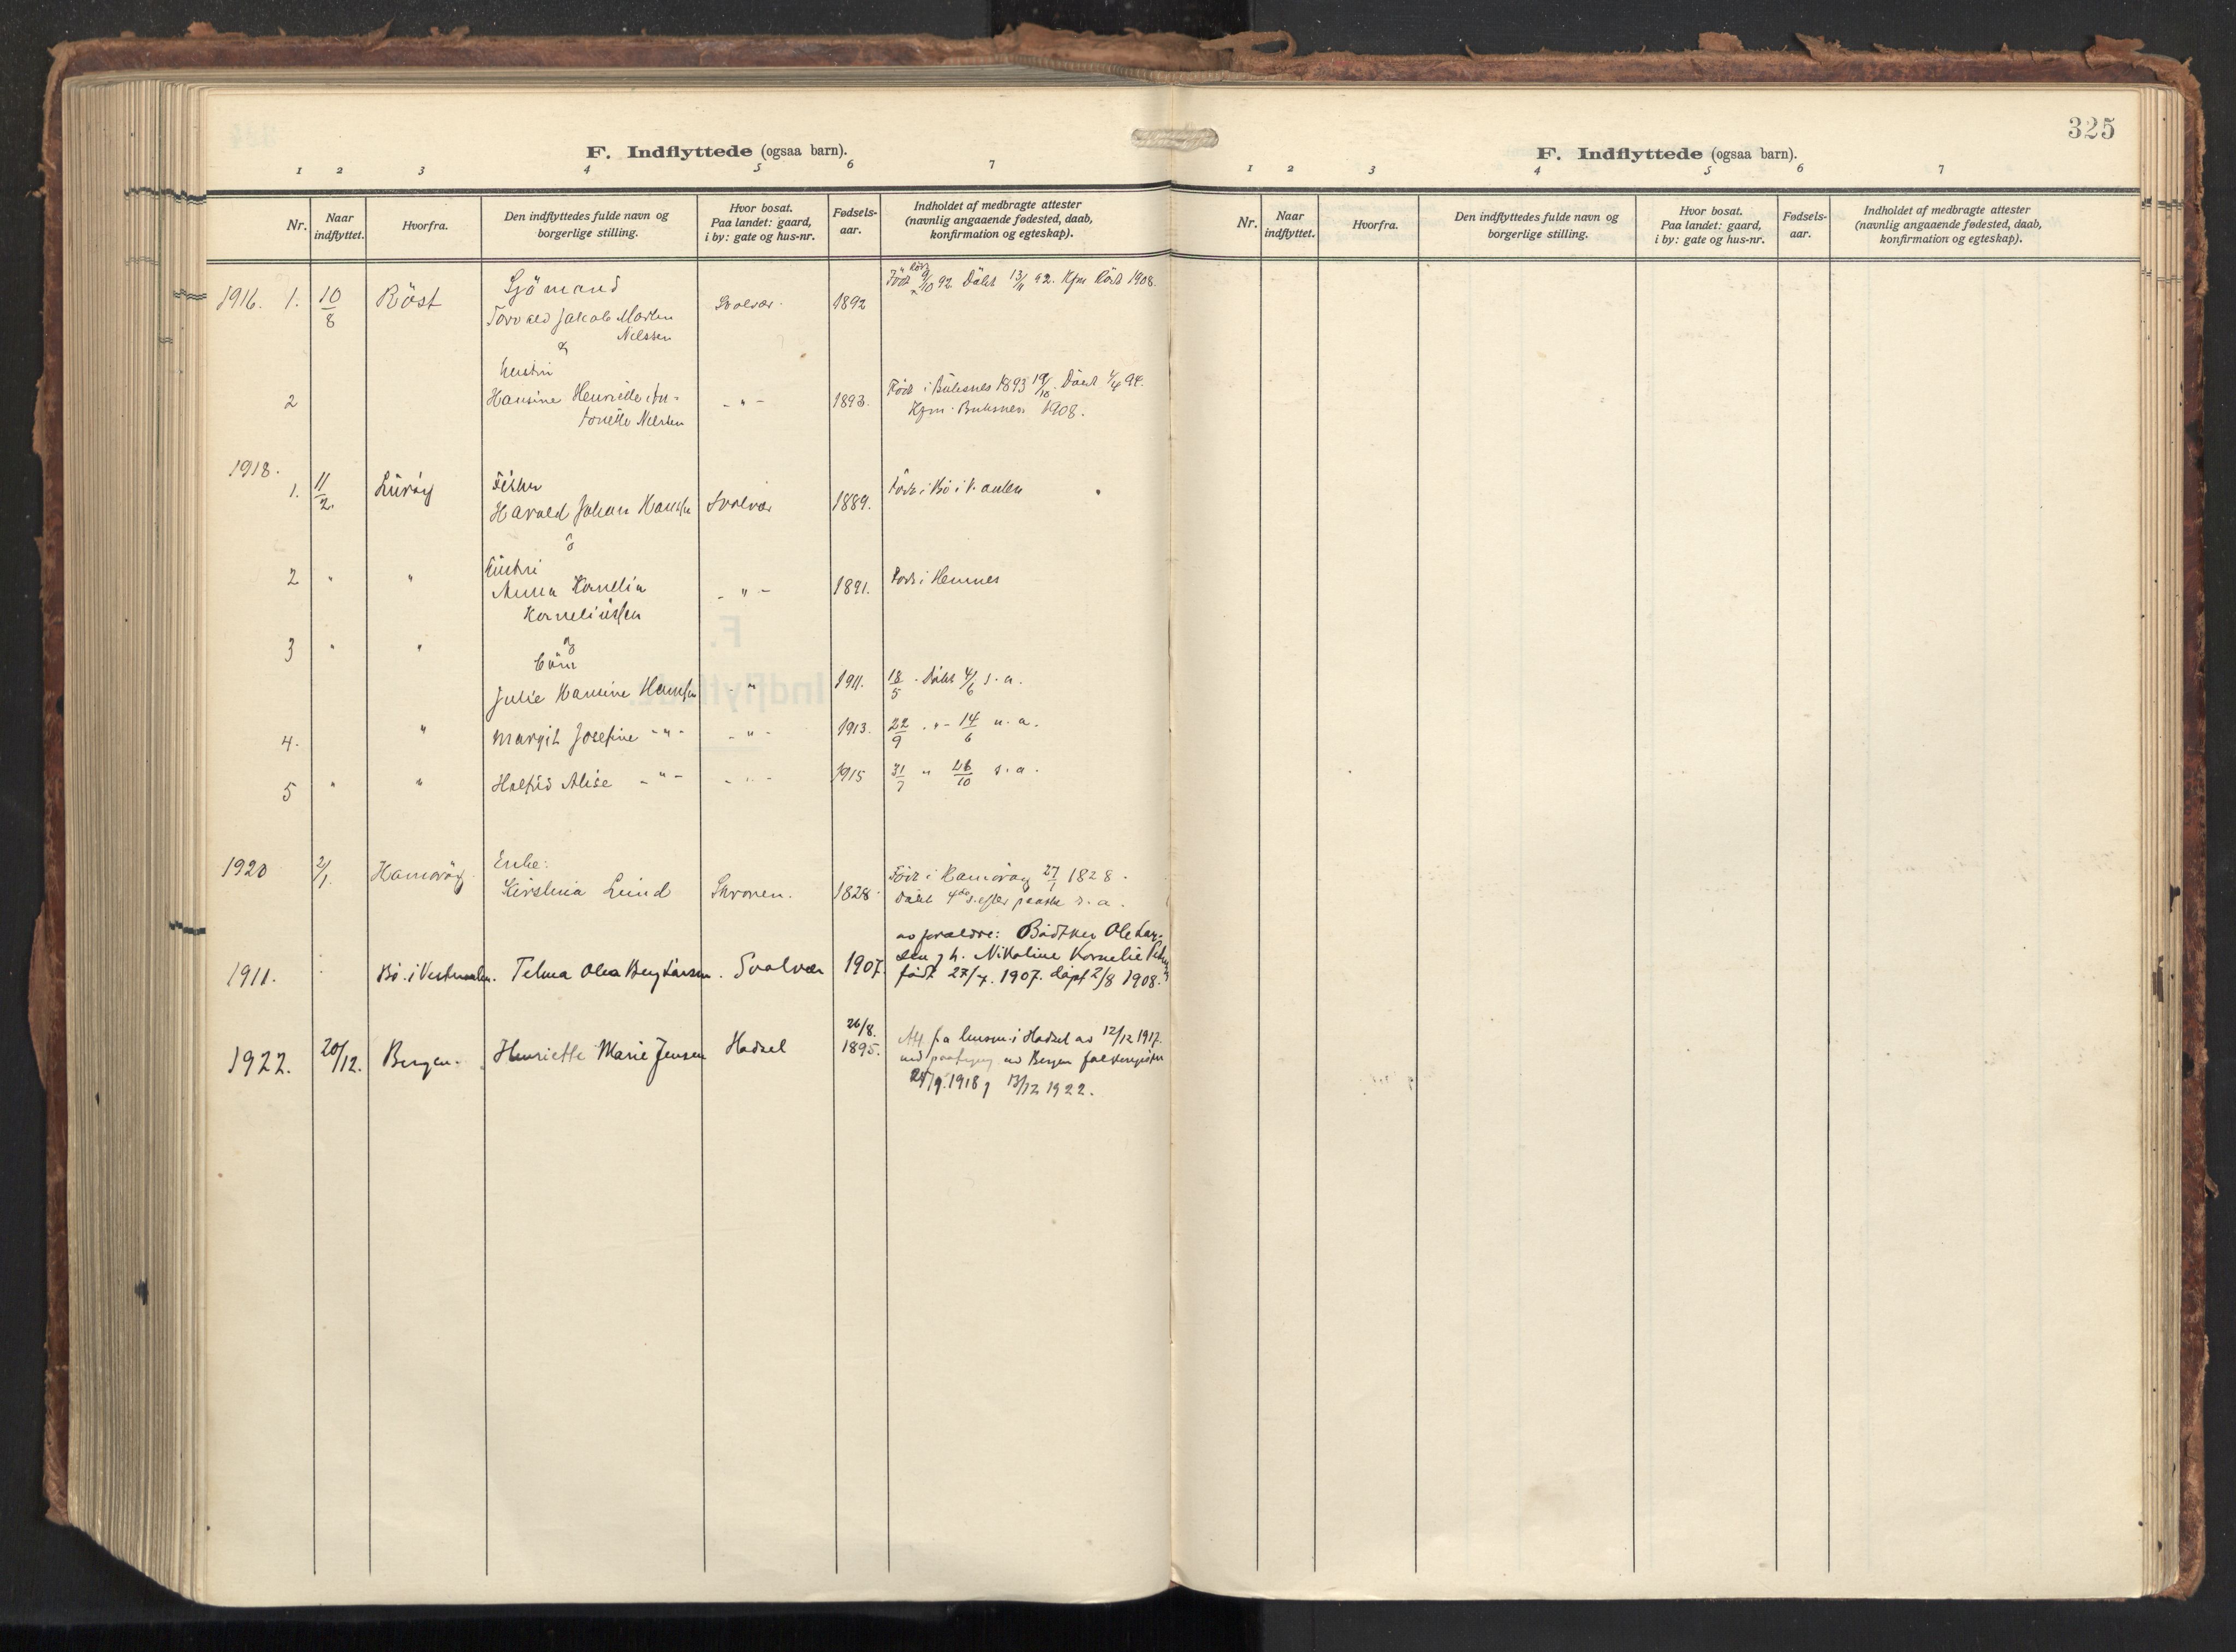 325
F. Indflyttede (ogsaa barn).
1 2 3 4 5 6 7
Nr. Naar indflyttet. Hvorfra. Den indflyttedes fulde navn og borgerlige stilling. Hvor bosat. Paa landet: gaard, i by: gate og hus-nr. Fødsels-aar. Indholdet af medbragte attester (navnlig angaaende fødested, daab, konfirmation og egteskap).
Sjömand
1916. 1. 10/8 Röst Torvald Jakob Martin Nilssen Svolvær 1892 Född 9/10 92. Döbt 13/11 92. Kfm Röst 1908.
&
hustru
2 Hansine Henriette An-
tonette Nilssen - " - 1893. Född i Buksnes 1893 19/10. Döbt 1/4 94.
Kfm. Buksnes 1908.
1918.
1. 11/2. Luröy Fisker
Harald Johan Hansen Svolvær 1889. Född i Bö i V.aalen
&
2 " " hustru
Anna Kornelia
Korneliussen - " - 1891. Född i Hemnes
3 " " og
börn
Julie Hansine Hansen - " 1911. 18/5 . Döbt 4/6 s.a.
4. " Margit Josefine - " - - " - 1913. 22/9 . " - 14/6 n.a.
5 " " Halfrid Alise - " - - " - 1915 31/7 " 26/10 s.a.
1920 2/1. Hamaröy Enke:
Kirstina Lund Skroven. 1828. Född i Hamaröy 27/1 1828.
Döbt 4de s. efter paaske s.a.
av forældre: Bödtker Ole Lar-
sen g h. Nikoline Kornelie
1911. Bö. i Vesteraalen. Telma Olea Berg Larsen. Svolvær 1907. født 27/7. 1907. døpt 2/8 1908.
1922. 20/12. Bergen. Henriette Marie Jensen Hadsel 26/8. 1895. Att fra lensm. i Hadsel av 12/12 1917.
med paategn av Bergen folkeregister
24/9. 1918 & 13/12 1922.
F. Indflyttede (ogsaa barn).
1 2 3 4 5 6 7
Nr. Naar indflyttet. Hvorfra. Den indflyttedes fulde navn og borgerlige stilling. Hvor bosat. Paa landet: gaard, i by: gate og hus-nr. Fødsels-aar. Indholdet af medbragte attester (navnlig angaaende fødested, daab, konfirmation og egteskap).